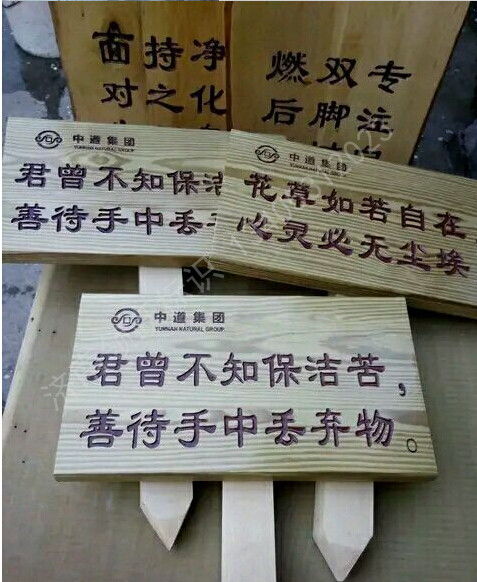 净化
持之
面对
专注
双脚
燃后
中道集团
君曾不知保洁
善待手中丢
中道集团
花草如若自在，
心灵必无尘埃
中道集团
YUNNAN NATURAL GROUP
君曾不知保洁苦，
善待手中丢弃物。